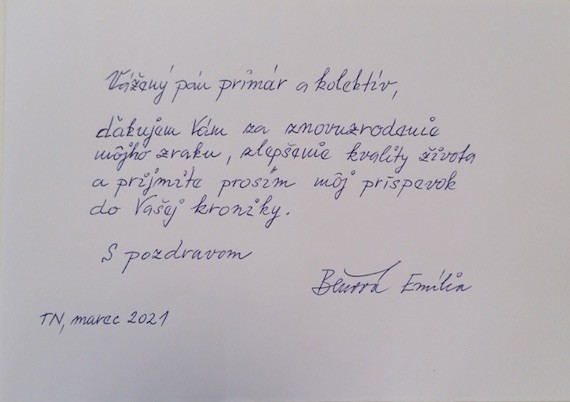 Vážený pán primár a kolektív,
ďakujem Vám za znovuzrodenie
môjho zraku, zlepšenie kvality života
a prijmite prosím môj príspevok
do Vašej kroniky.
S pozdravom
Emília
TN, marec 2021